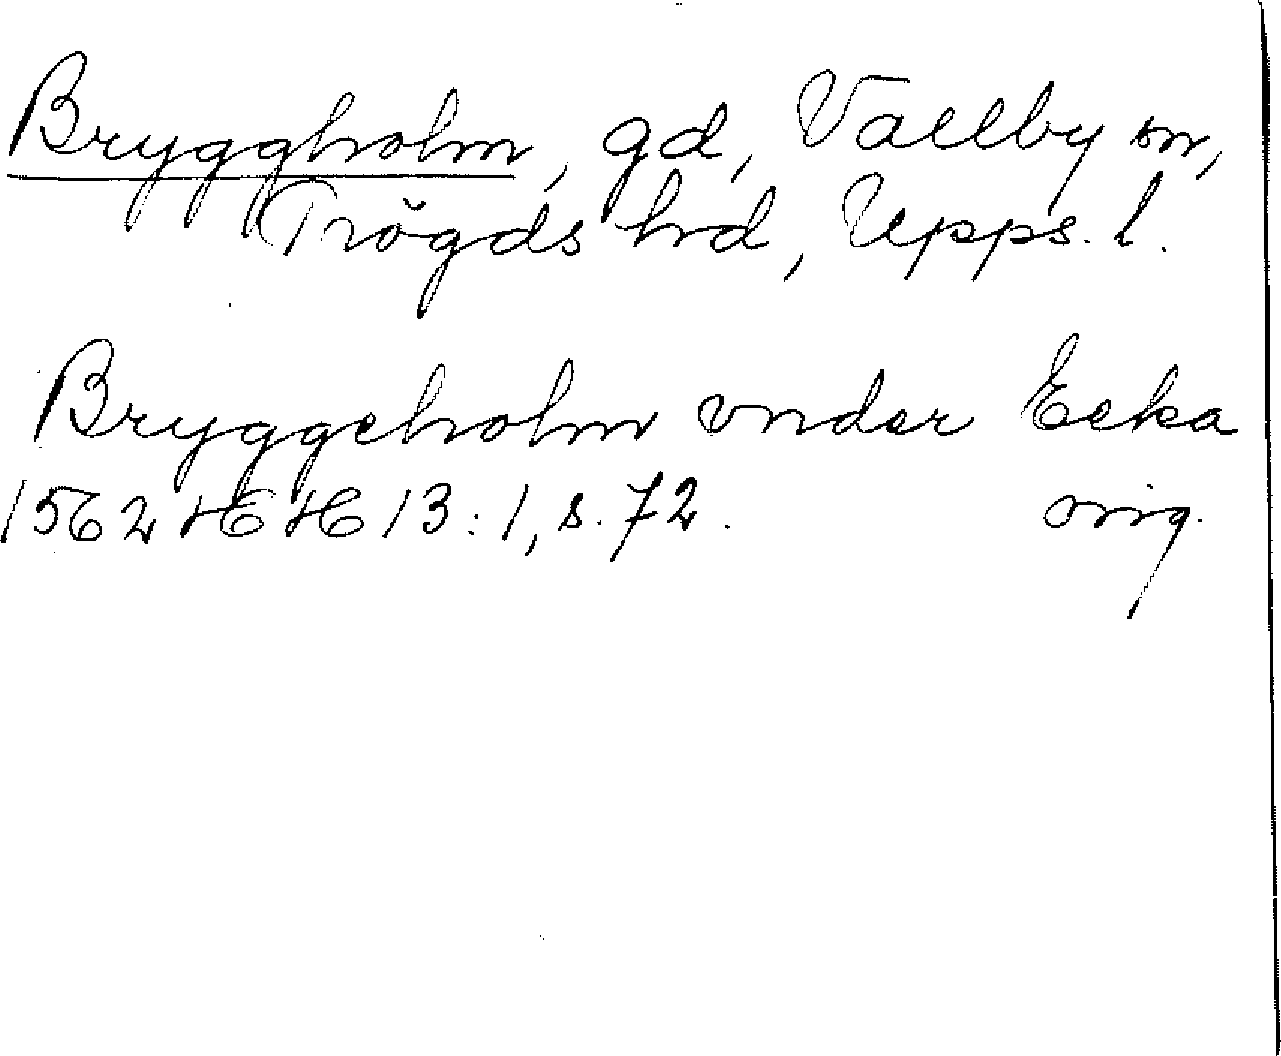 Bryggholm, gd, Vallby sn,
Trögds hrd, Upps. l.
Bryggeholm vnder Ecka
1562 HH 13:1, s. 72. orig.